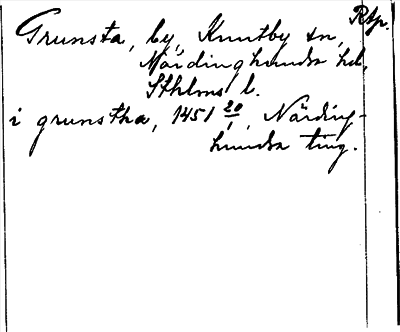 Grunsta, by, Knutby sn, Rtp.
Närdinghundra hd,
Sthlms l.
i grunstha, 1451 20/1, Närding-
hundra ting.